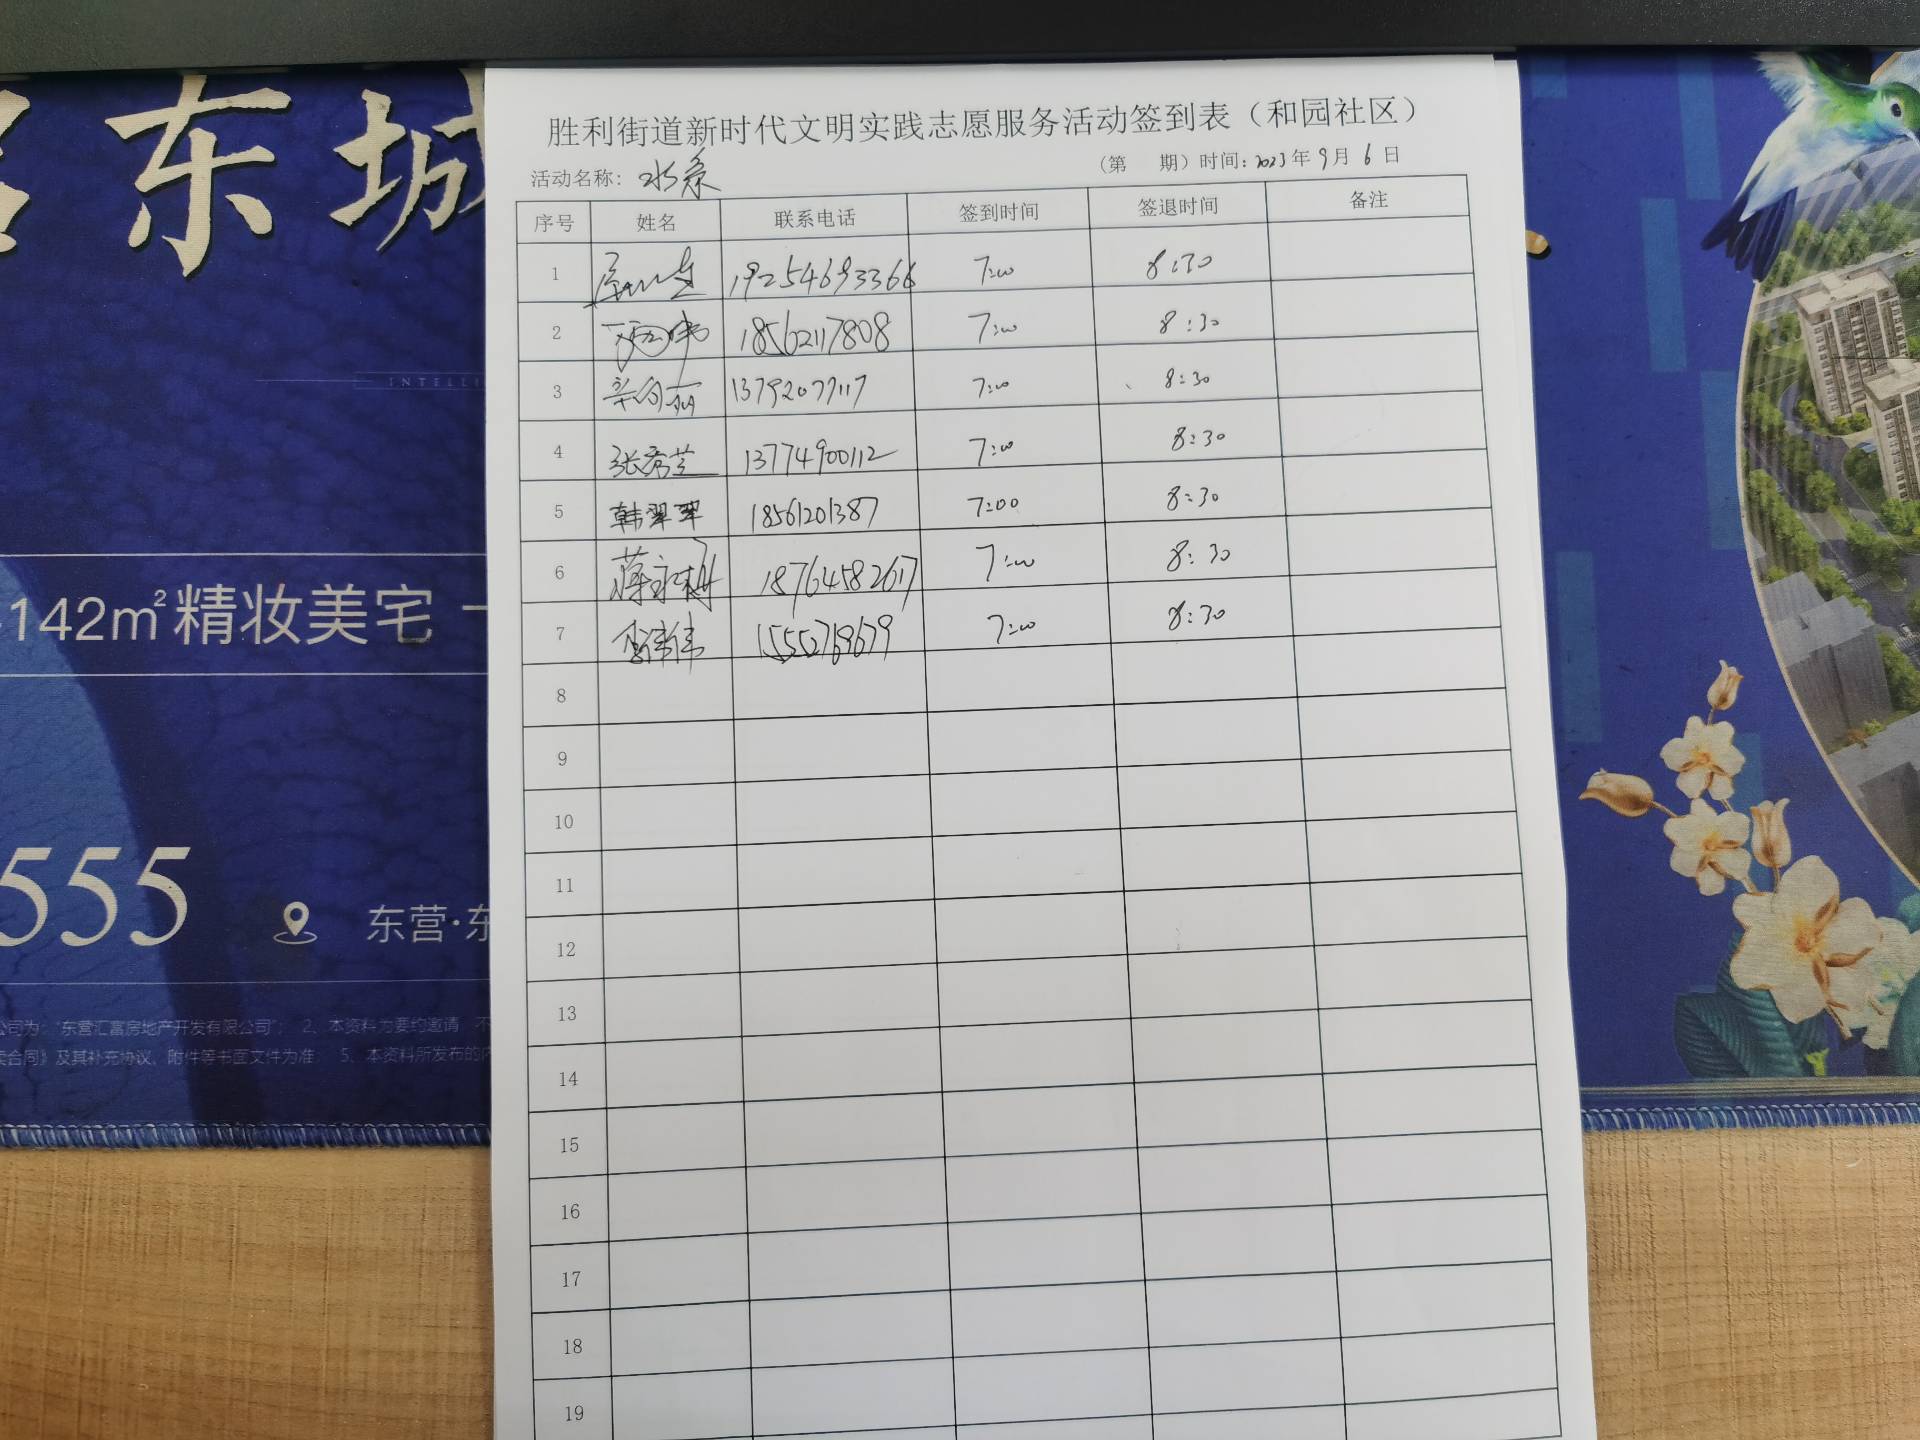 东城
INTELLI
142m²精妆美宅
555
东营·东
公司为:“东营汇富房地产开发有限公司”; 2、本资料为要约邀请 不
卖合同》及其补充协议、附件等书面文件为准; 5、本资料所发布的内
胜利街道新时代文明实践志愿服务活动签到表（和园社区）
活动名称: 水系 （第 期）时间: 2023年9月6日
序号 姓名 联系电话 签到时间 签退时间 备注
1 19254693366 7:00 8:30
2 18562117808 7:00 8:30
3 13792077117 7:00 8:30
4 张秀芝 13774900112 7:00 8:30
5 韩翠翠 18561201387 7:00 8:30
6 蒋 18764582617 7:00 8:30
7 15552769679 7:00 8:30
8
9
10
11
12
13
14
15
16
17
18
19